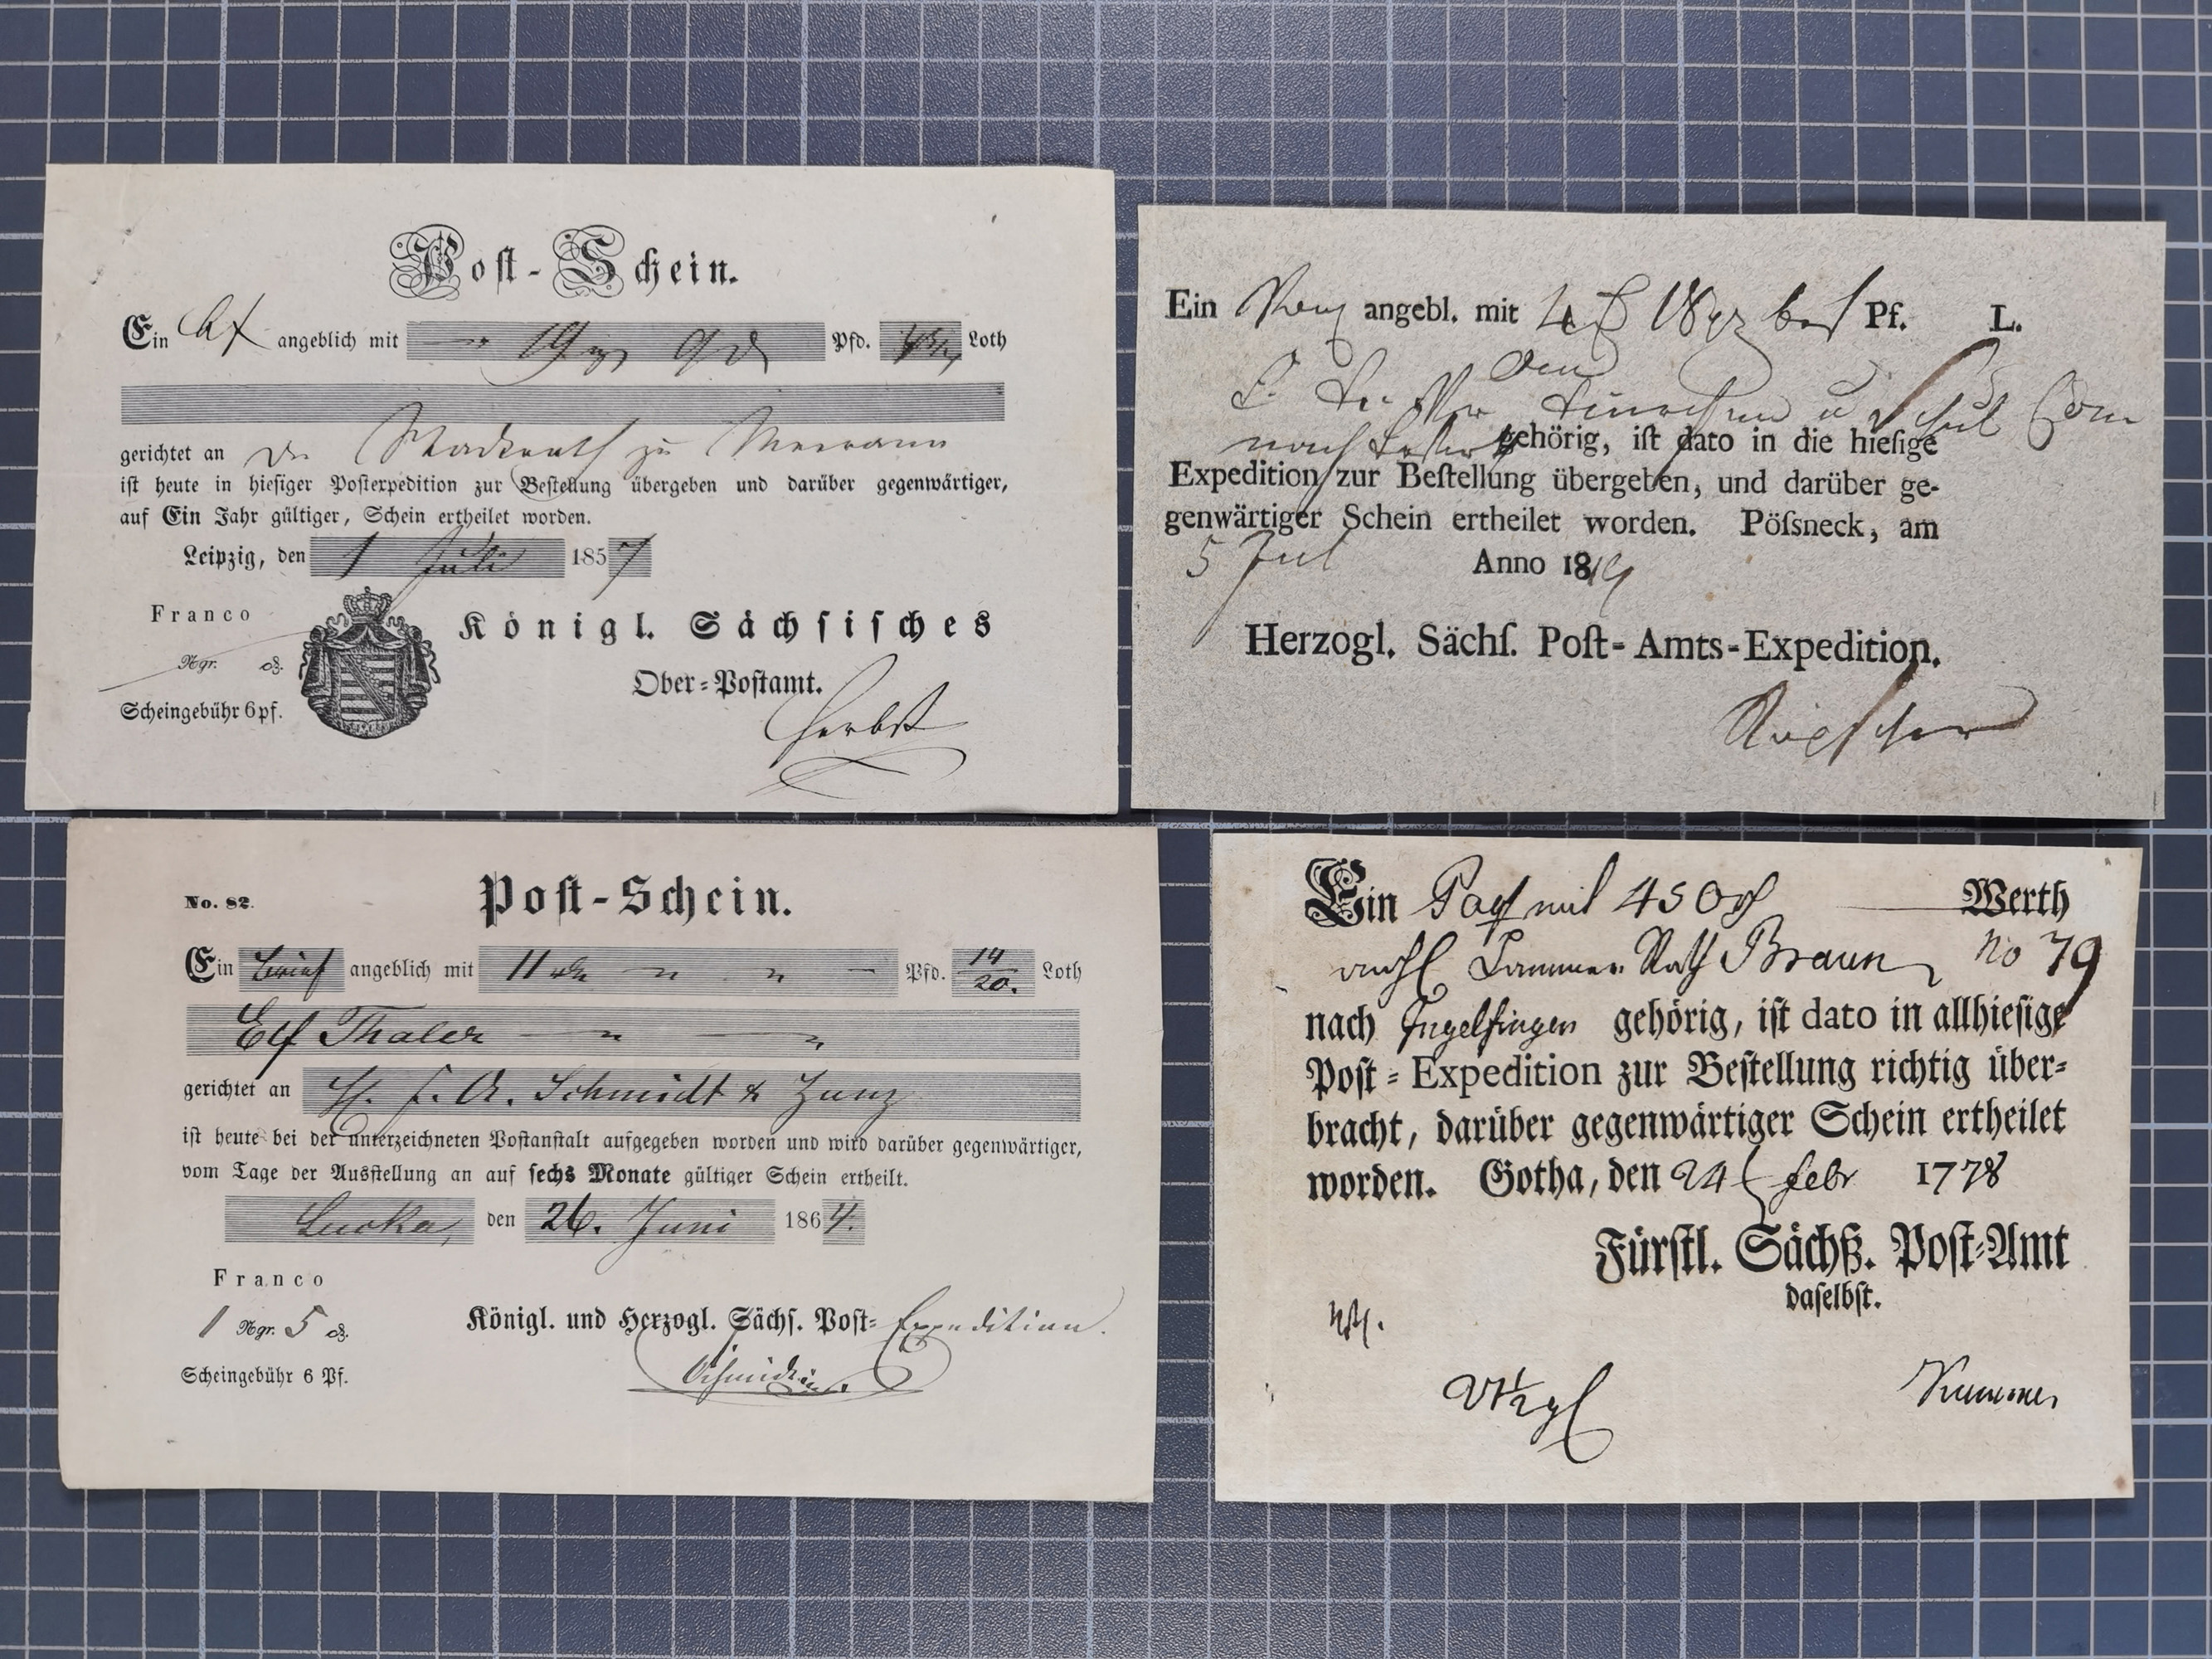 Post-Schein.
Ein angeblich mit 19 9 Pfd. Loth
gerichtet an Den Stadtrath zu Meerane
ist heute in hiesiger Postexpedition zur Bestellung übergeben und darüber gegenwärtiger,
auf Ein Jahr gültiger, Schein ertheilet worden.
Leipzig, den 1 Juli 1857
Franco
Ngr. ₰.
Scheingebühr 6 pf.
Königl. Sächsisches
Ober-Postamt.
Herbst
Ein angebl. mit 4 18 Pf. L.
nach gehörig, ist dato in die hiesige
Expedition zur Bestellung übergeben, und darüber ge-
genwärtiger Schein ertheilet worden. Pößneck, am
5 Jul Anno 1819
Herzogl. Sächs. Post-Amts-Expedition.
No. 82.
Post-Schein.
Ein Brief angeblich mit 11 " " Pfd. 14/20. Loth
Elf Thaler " "
gerichtet an H. F. A. Schmidt & Zunz
ist heute bei der unterzeichneten Postanstalt aufgegeben worden und wird darüber gegenwärtiger,
vom Tage der Ausstellung an auf sechs Monate gültiger Schein ertheilt.
Lucka, den 26. Juni 1864.
Franco
1 Ngr. 5 ₰.
Scheingebühr 6 Pf.
Königl. und Herzogl. Sächs. Post-Expedition.
Ein mit 450 Werth
Cammer Rath Braun No 79
nach Ingelfingen gehörig, ist dato in allhiesige
Post-Expedition zur Bestellung richtig über-
bracht, darüber gegenwärtiger Schein ertheilet
worden. Gotha, den 24 Febr 1778
Fürstl. Sächß. Post-Amt
daselbst.
Kummer